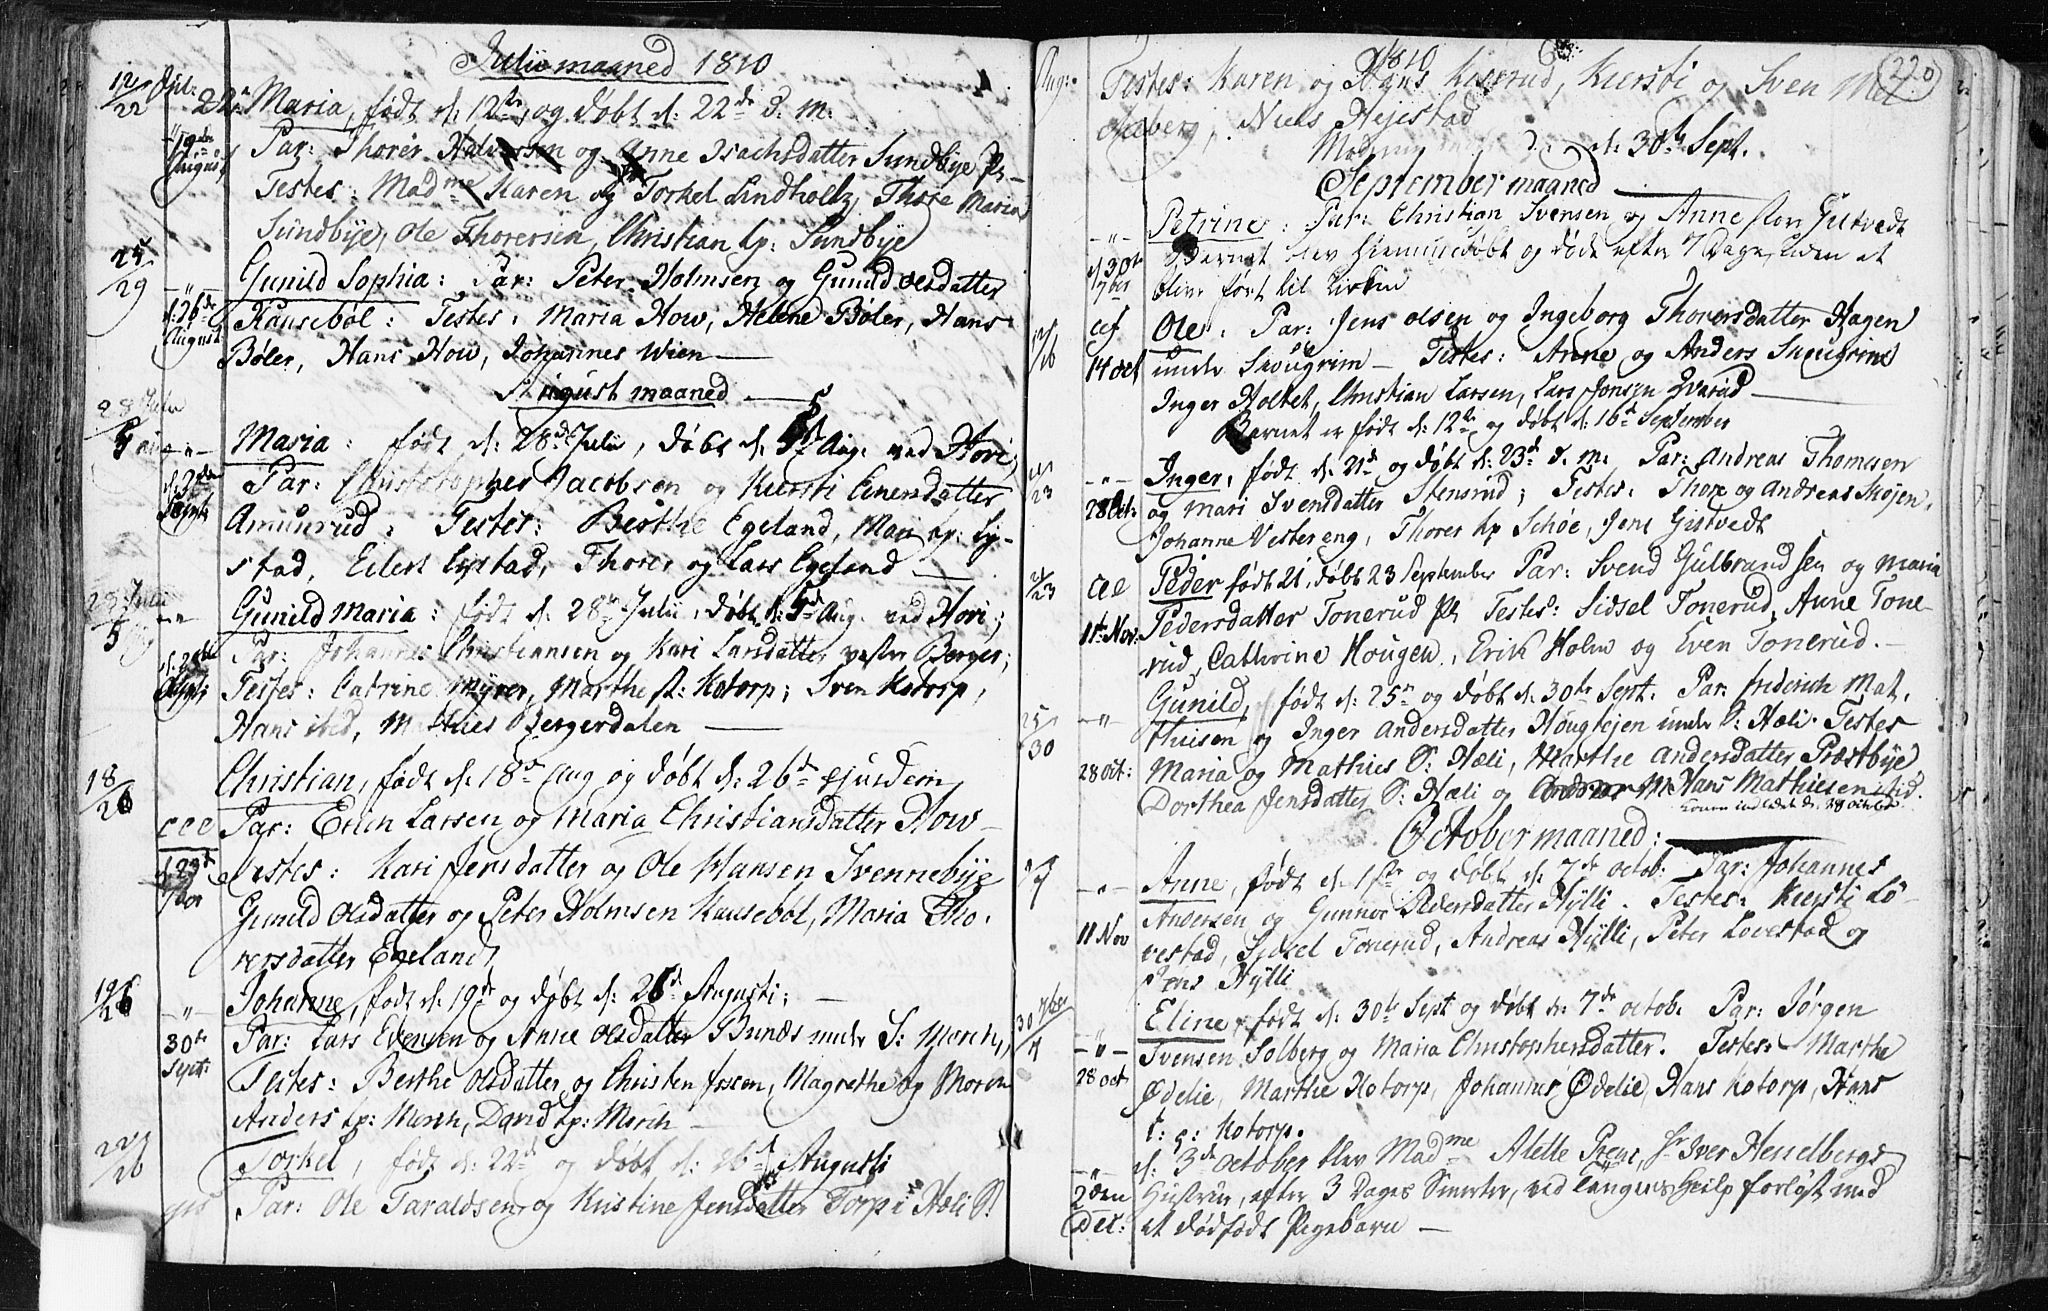 Julii maaned 1810
12/22 Jul: 22de Maria, født d: 12te og døbt d: 22de d. m.
19de August Par: Thorer Halversen og Anne Isachsdatter Sundbye Pl
Testes: Madme Karen og Torkel Lindholtz, Thore Maria
Sundbye, Ole Thorersen, Christian hp: Sundbye
25/29 Gunild Sophia: Par: Peter Holmsen og Gunild Olsdatter
d: 26de August Kausebøl: Testes: Maria How, Helene Bøler, Hans
Bøler, Hans How, Johannes Wien
August maaned
28 Julii 5 Aug Maria: født d: 28de Julii, døbt d: 5te Aug. ved Hovi;
Par: Christopher Jacobsen og Kiersti Einersdatter
Amunrud: Testes: Berthe Egeland, Mari hp: Ly-
stad, Eilert Lystad, Thorer og Lars Egeland
28 Julii 5 Aug Gunild Maria: født d: 28de Julii, døbt d: 5te Aug. ved Hovi;
Par: Johannes Christiansen og Kari Larsdatter vestre Berger;
Testes: Catrine Myrer, Marthe st: Kotorp; Sven Kotorp,
Hans ibid, Mathies Bergerdalen
18/26 Christian, født d: 18de Aug og døbt d: 26de ejusdem
Par: Erich Larsen og Maria Christiansdatter How
23de 7ber Testes: Kari Jensdatter og Ole Hansen Svennebye
Gunild Olsdatter og Peter Holmsen Kausebøl, Maria Tho-
rersdatter Egeland
19/26 Johanne, født d: 19de og døbt d: 26de Augusti;
30te Sept: Par: Lars Evensen og Anne Olsdatter Bunæs under S: Morch,
Testes: Berthe Olsdatter og Christen Ersen, Magrethe og Moren
Anders hp: Morch, David hp: Morch
22/26 Torkel, født d: 22de og døbt d: 26de Augusti
Par: Ole Taraldsen og Kristine Jensdatter Torp i Hæli S:
Aug: 1810 220
Testes: Karen og Hans Kierrud, Kiersti og Sven Mel
leberg, Niels Hejestad
d: 30te Sept.
September maaned
Petrine: Par: Christian Svensen og Anne stor Gutvedt
d 30te 7ber Barnet blev hiemmedøbt og døde efter 7 Dage, uden at
blive ført til Kirken
12/16 cef Ole: Par: Jens Olsen og Ingeborg Thorersdatter Hagen
14 oct under Skougrim Testes: Anne og Anders Skougrim
Inger Holtet, Christian Larsen, Lars Jonsen
Barnet er født d: 12te og døbt d: 16de September
21/23 Inger, født d: 21de og døbt d: 23de d. m. Par: Andreas Thomesen
28 Oct: og Mari Svensdatter Stensrud; Testes: Thore og Andreas Skojen,
Johanne Vestereng, Thorer hp Schøe, Jens Gistvedt
21/23 cce Peder født 21, døbt 23 September Par: Svend Gulbrandsen og Maria
11te Nov: Pedersdatter Tonerud Pl Testes: Sidsel Tonerud, Anne Tone-
rud, Cathrine Hougen, Erik Holm og Even Tonerud.
25/30 Gunild, født d: 25de og døbt d: 30te Sept. Par: Friderich Mat-
thisen og Inger Andersdatter Houglejen under S: Hæli. Testes
28 oct: Maria og Mathies S: Hæli, Marthe Andersdatter Præstbye
Dorthea Jensdatter S: Hæli og Hans Mathiesen ibid.
Konen indledt d: 28 octobr
October maaned:
1/7 Anne, født d: 1ste og døbt d: 7de octob: Par: Johannes
Andersen og Gunnor Pedersdatter Hylli. Testes: Kiersti Lø-
11 Nov vestad, Sidsel Tonerud, Andreas Hylli, Peter Løvestad og
Jens Hylli
30 7ber/7 Eline, født d: 30te Sept og døbt d: 7de octob. Par: Jørgen
Svensen Solberg og Maria Christophersdatter. Testes: Marthe
28 oct Ødelie, Marthe Kotorp, Johannes Ødelie, Hans Kotorp, Hans
t: g: Kotorp.
d: 3de October blev Madme Alette Preus, Hr Iver Hesselbergs
2den Hustrue, efter 3 Dages Smerter, ved Tangens Hielp forløst med
Dec: et dødfødt Pigebarn